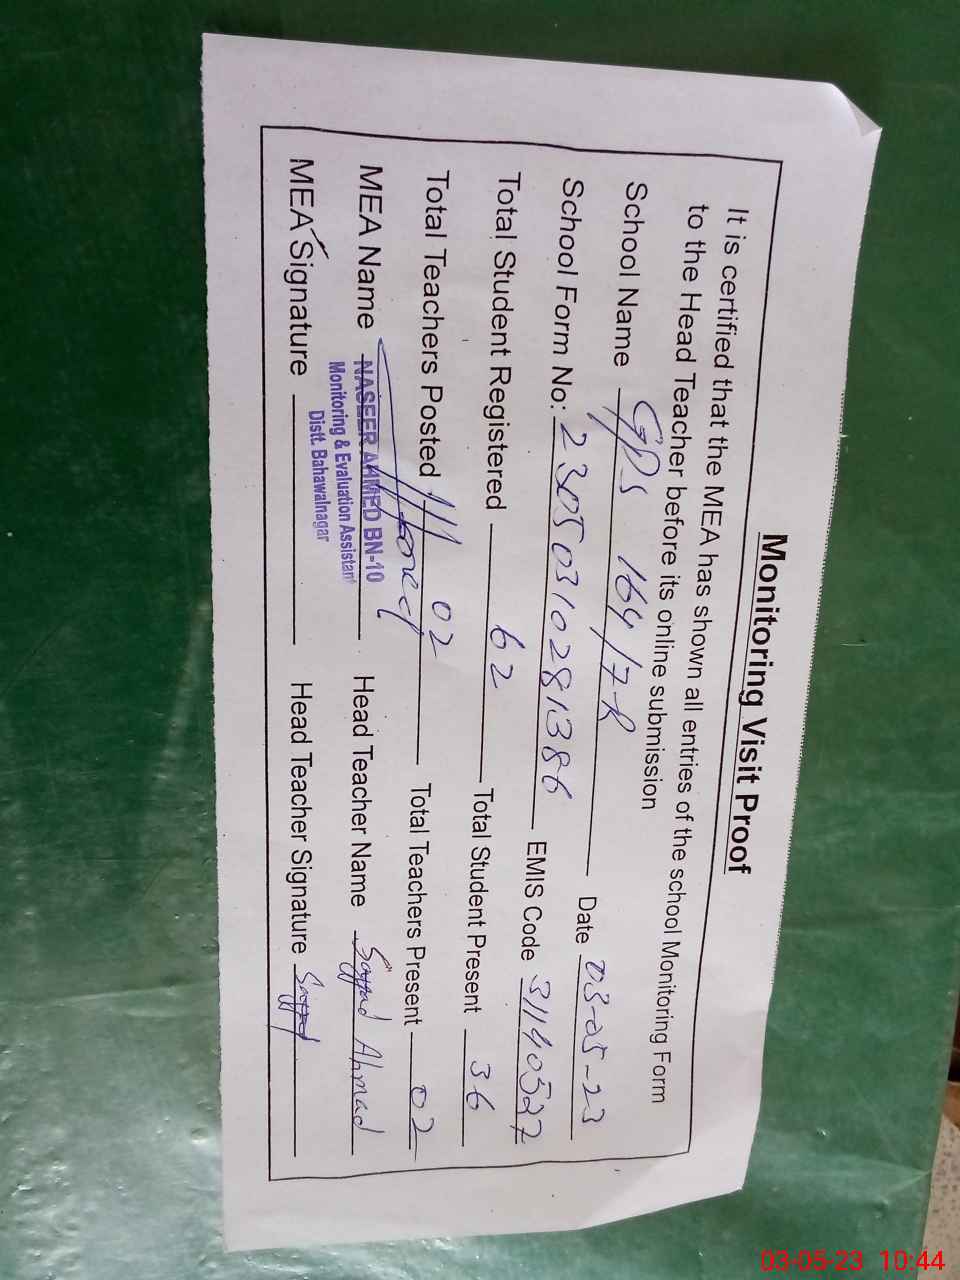 Monitoring Visit Proof
It is certified that the MEA has shown all entries of the school Monitoring Form
to the Head Teacher before its online submission
School Name GPS 164/7-R Date 03-05-23
School Form No: 23050310281386 EMIS Code 31140527
Total Student Registered 62 Total Student Present 36
Total Teachers Posted 02 Total Teachers Present 02
MEA Name NASEER AHMED BN-10 Head Teacher Name Sajjad Ahmad
Monitoring & Evaluation Assistant
Distt. Bahawalnagar
MEA Signature Head Teacher Signature Sajjad
03-05-23 10:44